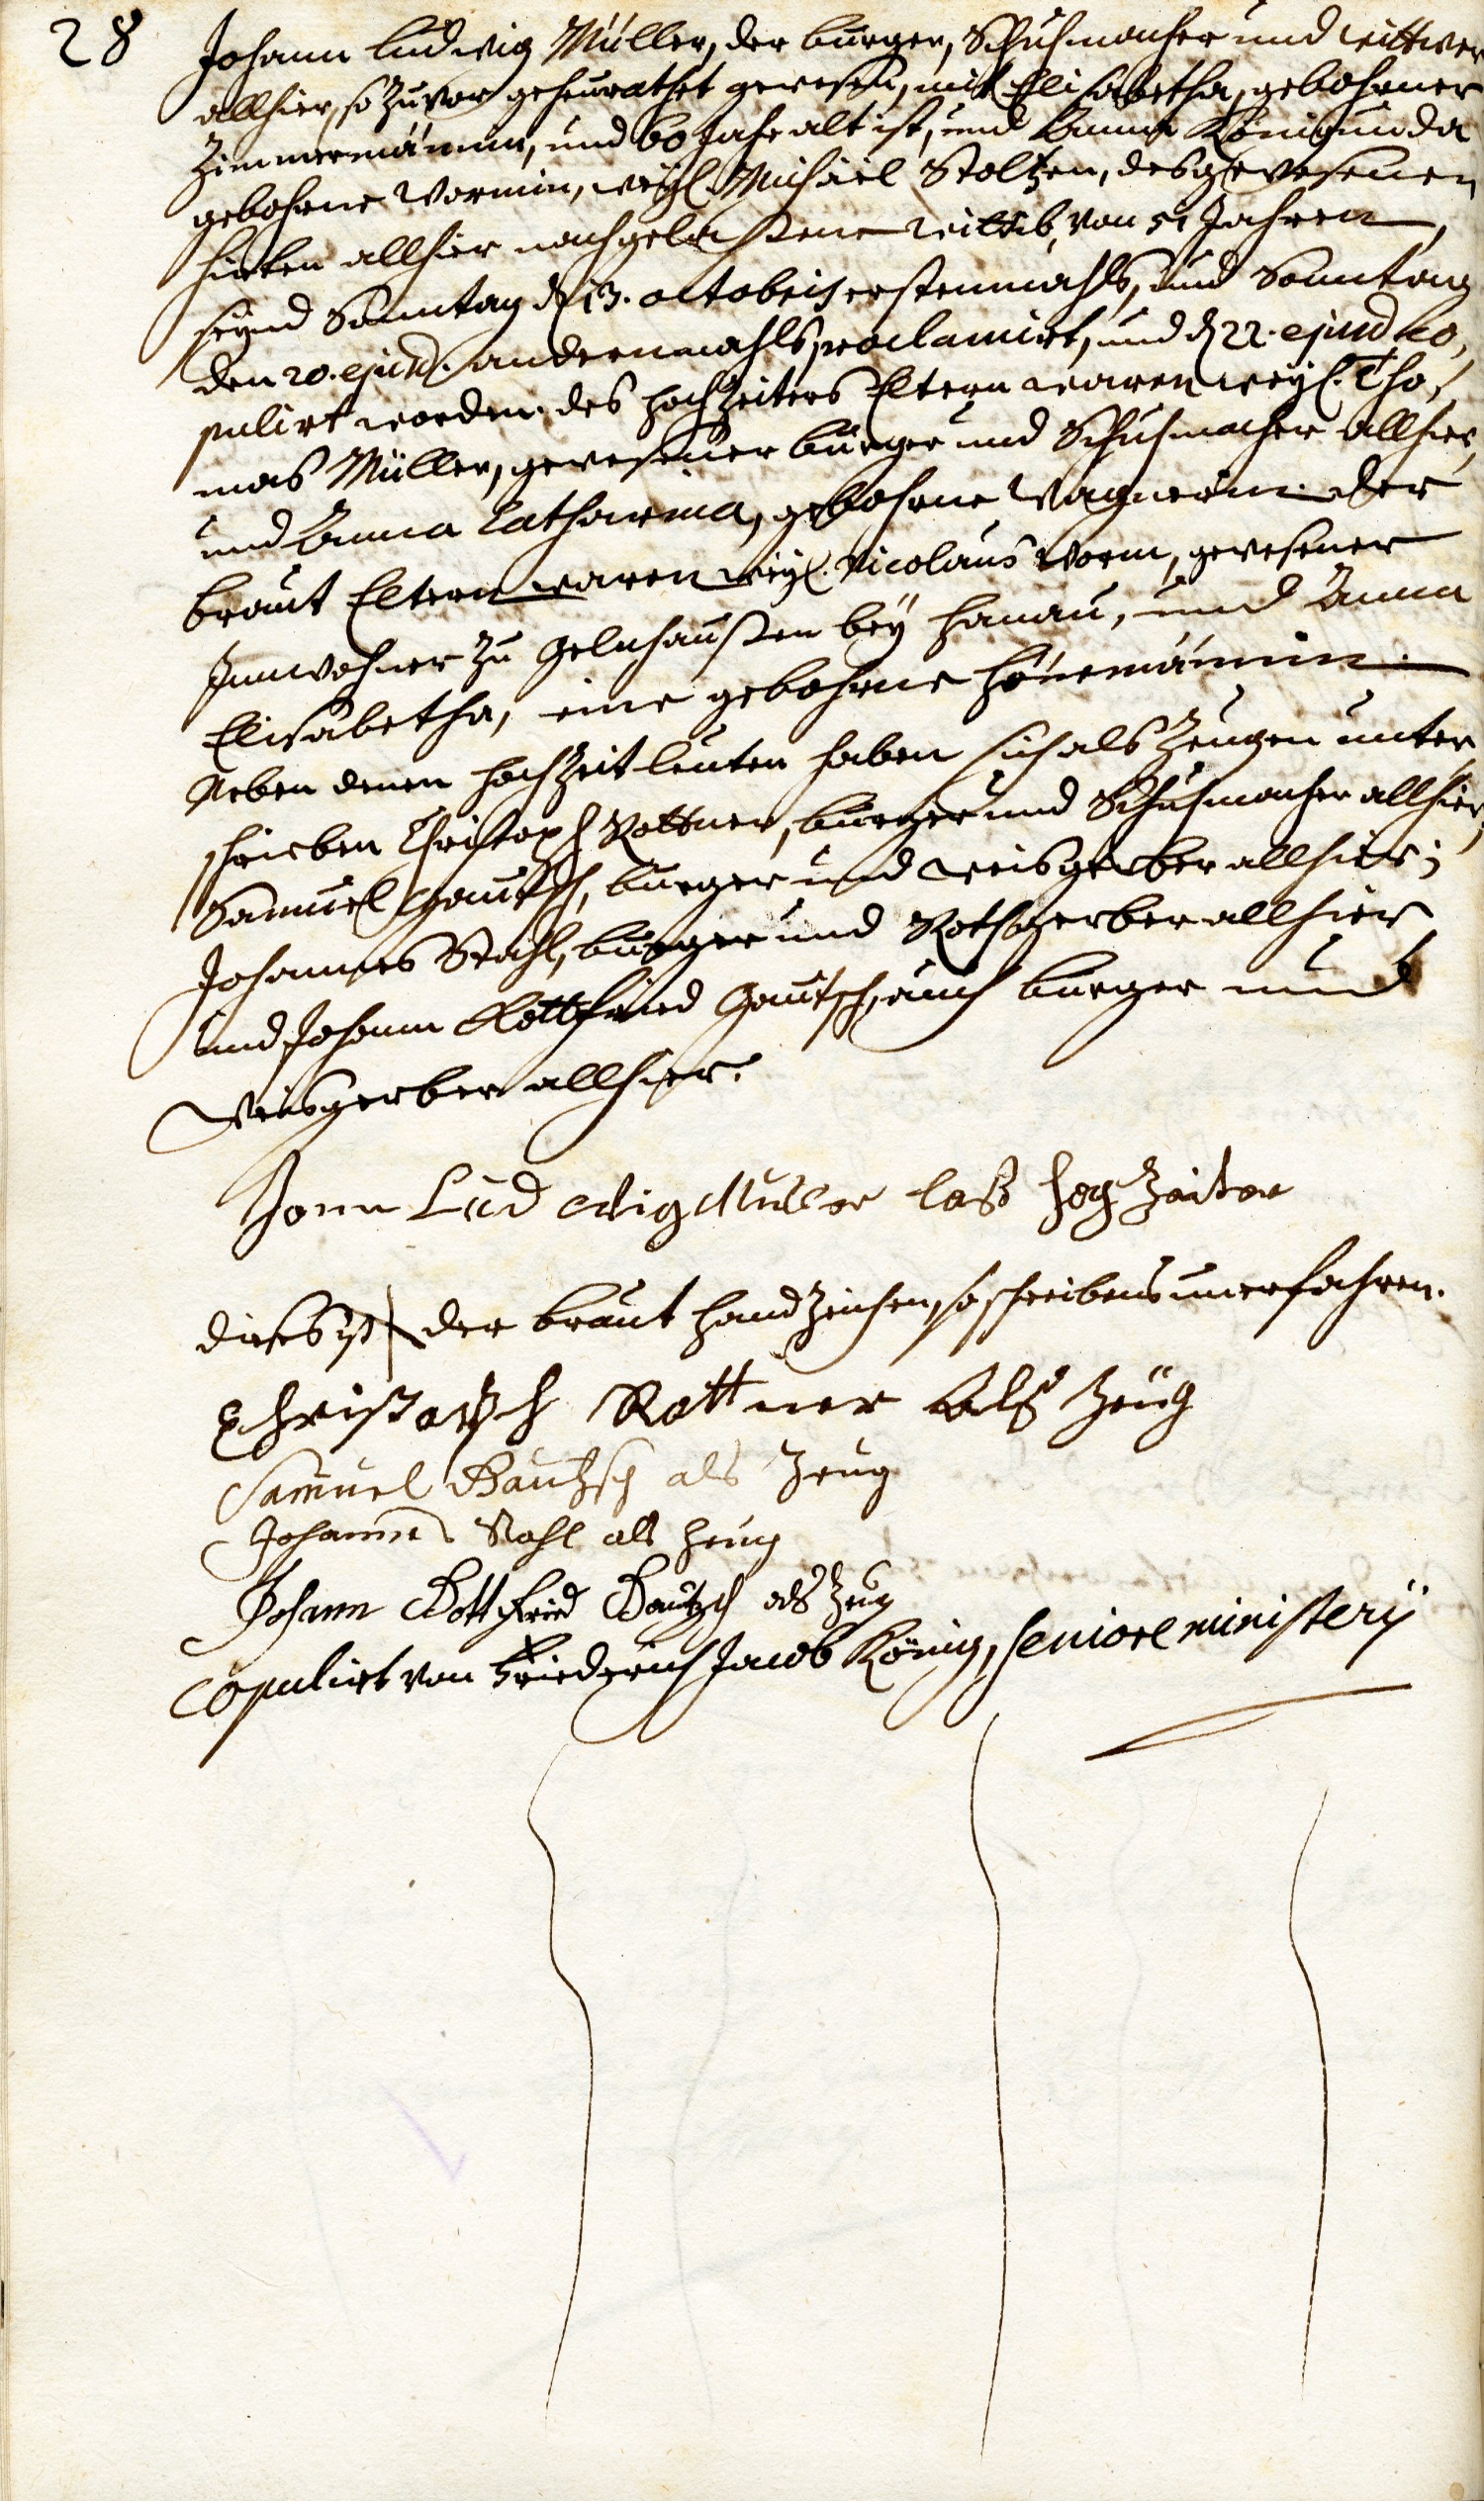 28
Johann Ludwig Müller, der burger, Schuhmacher und wittwer
allhier, so zuvor geheurathet gewesen, mit Elisabetha, gebohrner
Zimmermännin, und 60 Jahr alt ist, und Anna Königunda
gebohrne Wormin, weyl. Michäel Stoltzen, des gewesenen
hirten allhier nachgelassene wittib, von 51 Jahren,
seynd Sonntag d 13. octobris erstenmahls, und Sonntag
den 20. ejusd. andernmahls proclamirt, und d 22. ejusd co,
pulirt worden. des hochzeiters Eltern waren weyl. Tho,
mas Müller, gewesener burger und Schuhmacher allhier,
und Anna Catharina, gebohrne Wagnerin. der
braut Eltern waren weyl. Nicolaus Worm, gewesener
Innwohner zu Gelnhaußen bey Hanau, und Anna
Elisabetha, eine gebohrne
Neben denen hochzeitleuten haben sich als Zeugen unter,
schrieben Christoph Rottner, burger und Schuhmacher allhier,
Samuel Gautsch, burger und weisgerber allhier;
Johannes Stahl, burger und Rothgerber allhier
und Johann Gottfried Gautsch, auch burger und
Weisgerber allhier.
Jonn Lud wig Muller lass hoch Zeiter
dieses ist der braut handzeichen, so schreibens unerfahren.
Christoph Rottner Alß Zeug
Samuel Gautzsch als Zeug
Johannes Stahl als Zeug
Johann Gottfried Gautzsch als Zeug
Copulirt von Friederich Jacob König, seniore ministerij